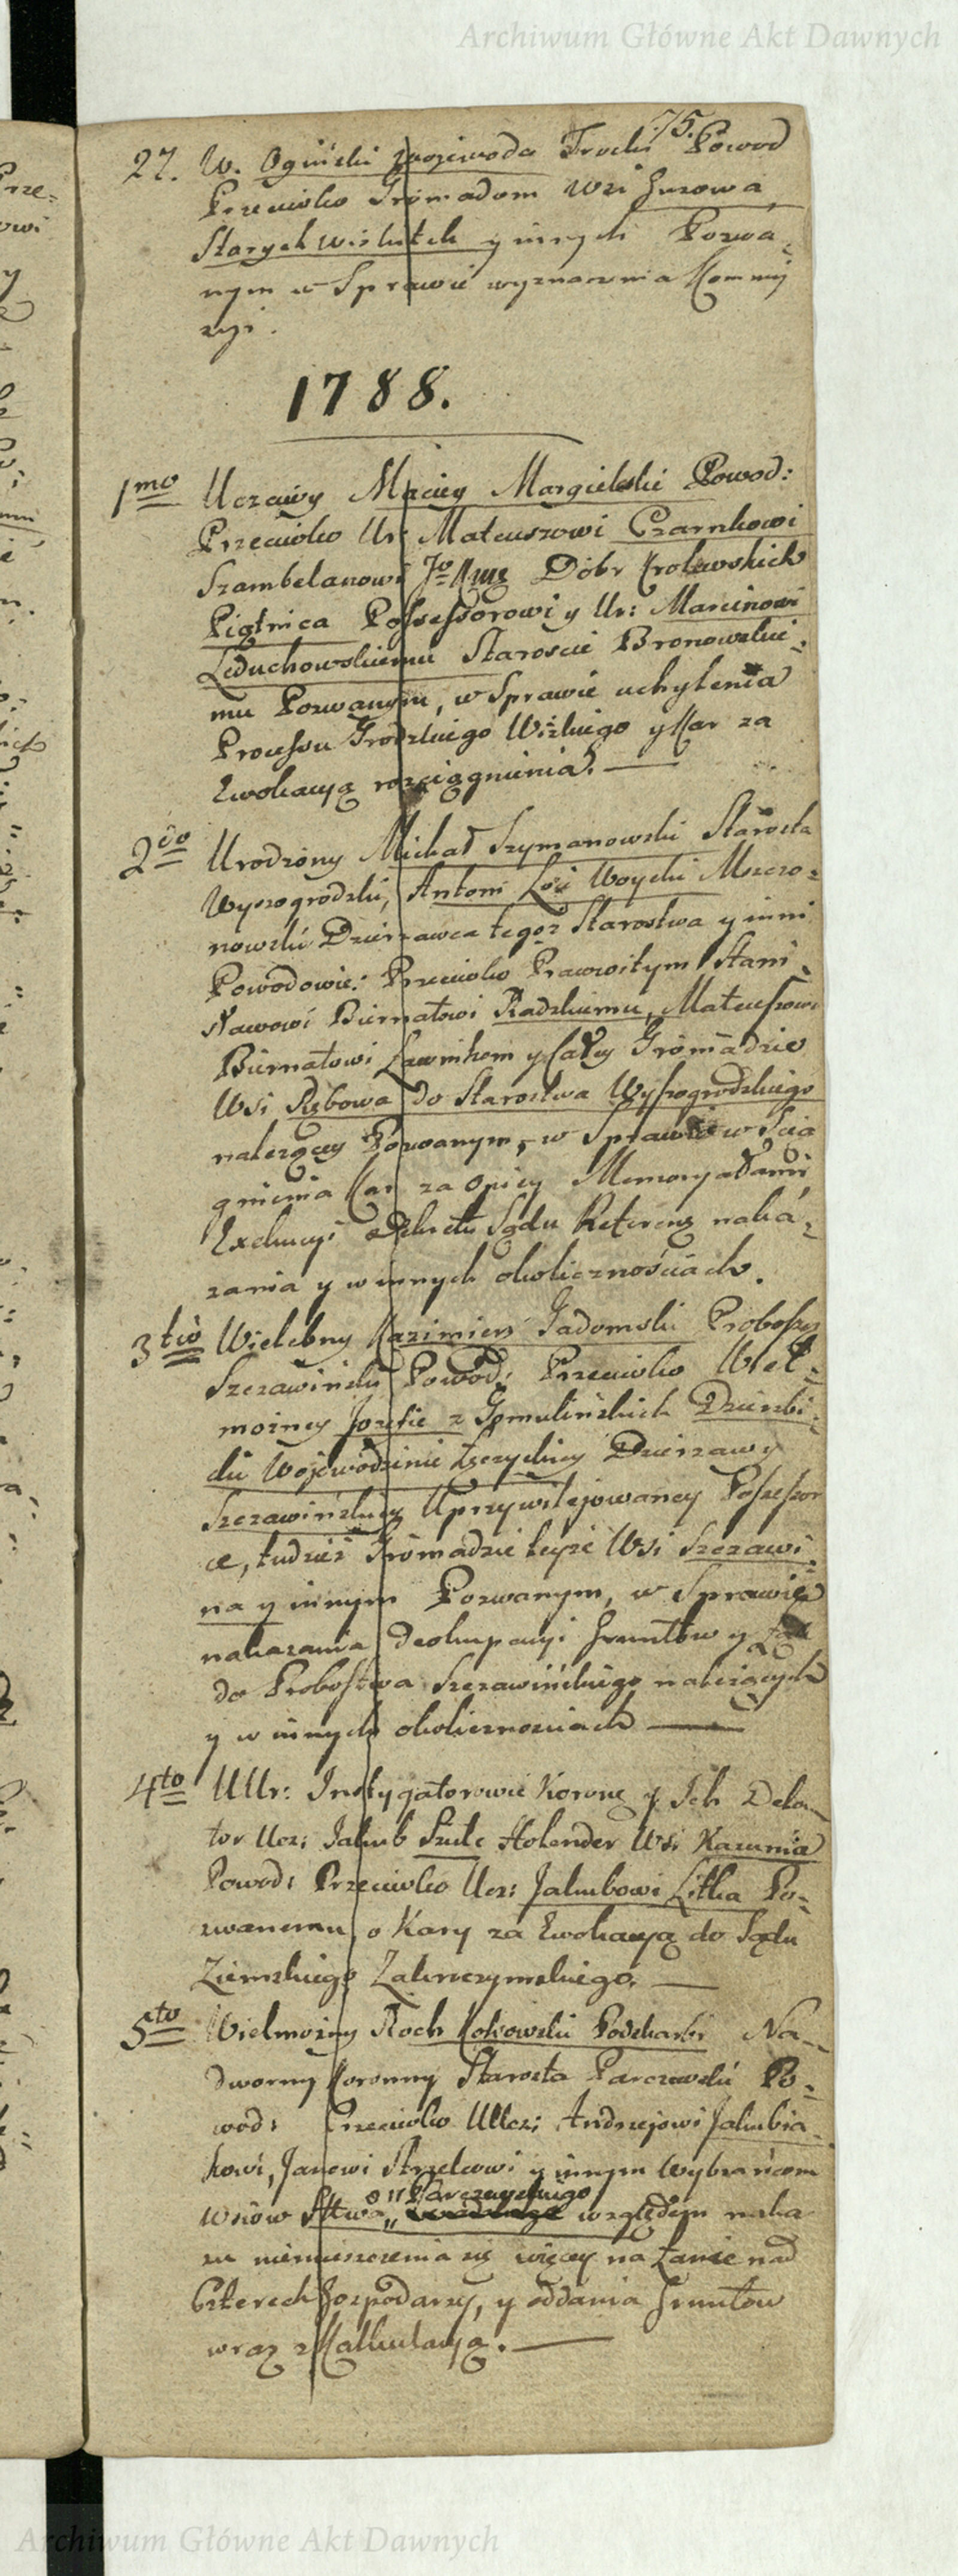 Archiwum Główne Akt Dawnych
75.
27. W. Ogiński Wojewoda Trocki Powod
Przeciwko Gromadom Wsi Guzowa
Starych Wiskitek y innych Pozwa-
nym w Sprawie wyznaczenia Kommis
syi.
1788.
1mo Uczciwy Maciey Margielski Powod:
Przeciwko Ur: Mateuszowi Czarnkowi
Szambelanowi JoKMę Dobr Krolewskich
Piątnica Possessorowi y Ur: Marcinowi
Leduchowskiemu Staroscie Bronowskie-
mu Pozwanym, w Sprawie uchylenia
Processu Grodzkiego Wizkiego y Kar za
Ewokacyą rozciągnienia. —
2do Urodzony Michał Szymanowski Starosta
Wyszogrodzki, Antoni Woyski Mszczo-
nowski Dzierzawca tegoz Starostwa y inni
Powodowie: Przeciwko Prawowitym Stani-
sławowi Biernatowi Radzkiemu, Mateuszowi
Biernatowi Ławnikom y całey Gromadzie
Wsi Rębowa do Starostwa Wyszogrodzkiego
należącey Pozwanym, w Sprawie w Scią
gnienia Kar za Opiey Memoryałami
Exekucyi Dekretu Sądu Referens: naka-
zania y w innych okolicznościach.
3tio Wielebny Kazimierz Gadomski Proboszcz
Szczawiński Powod: Przeciwko Wiel-
mozney Jozefie z Gomulińskich Dzierzbi-
cki Wojewodzinie Łęczyckiey Dzierzawy
Szczawińskiey Uprzywilejowaney Possessor
ce, tudzież Gromadzie teyże Wsi Szczawi-
na y innym Pozwanym, w Sprawie
nakazania Deokupacyi Gruntow y Łąk
do Probostwa Szczawińskiego należących
y w innych okolicznosciach —
4to UUr: Instygatorowie Koronę y Ich Dela
tor Ucz: Jakub Szulc Holender Wsi Kazunia
Powod: Przeciwko Ucz: Jakubowi Litka Po-
zwanemu o Kary za Ewokacyą do Sądu
Ziemskiego Zakroczymskiego. —
5to Wielmożny Roch Kossowski Podskarbi Na-
dworny Koronny Starosta Parczewski Po-
wod: Przeciwko UUcz: Andrzejowi Jakubia-
kowi, Janowi Strzelcowi y innym Wybrańcom
Parczewskiego
Wsiow Sttwa względem naka
zu niemieszczenia się więcey na Łanie nad
Czterech Gospodarzy, y oddania Gruntow
wraz z Kalkulacyą. —
Archiwum Główne Akt Dawnych